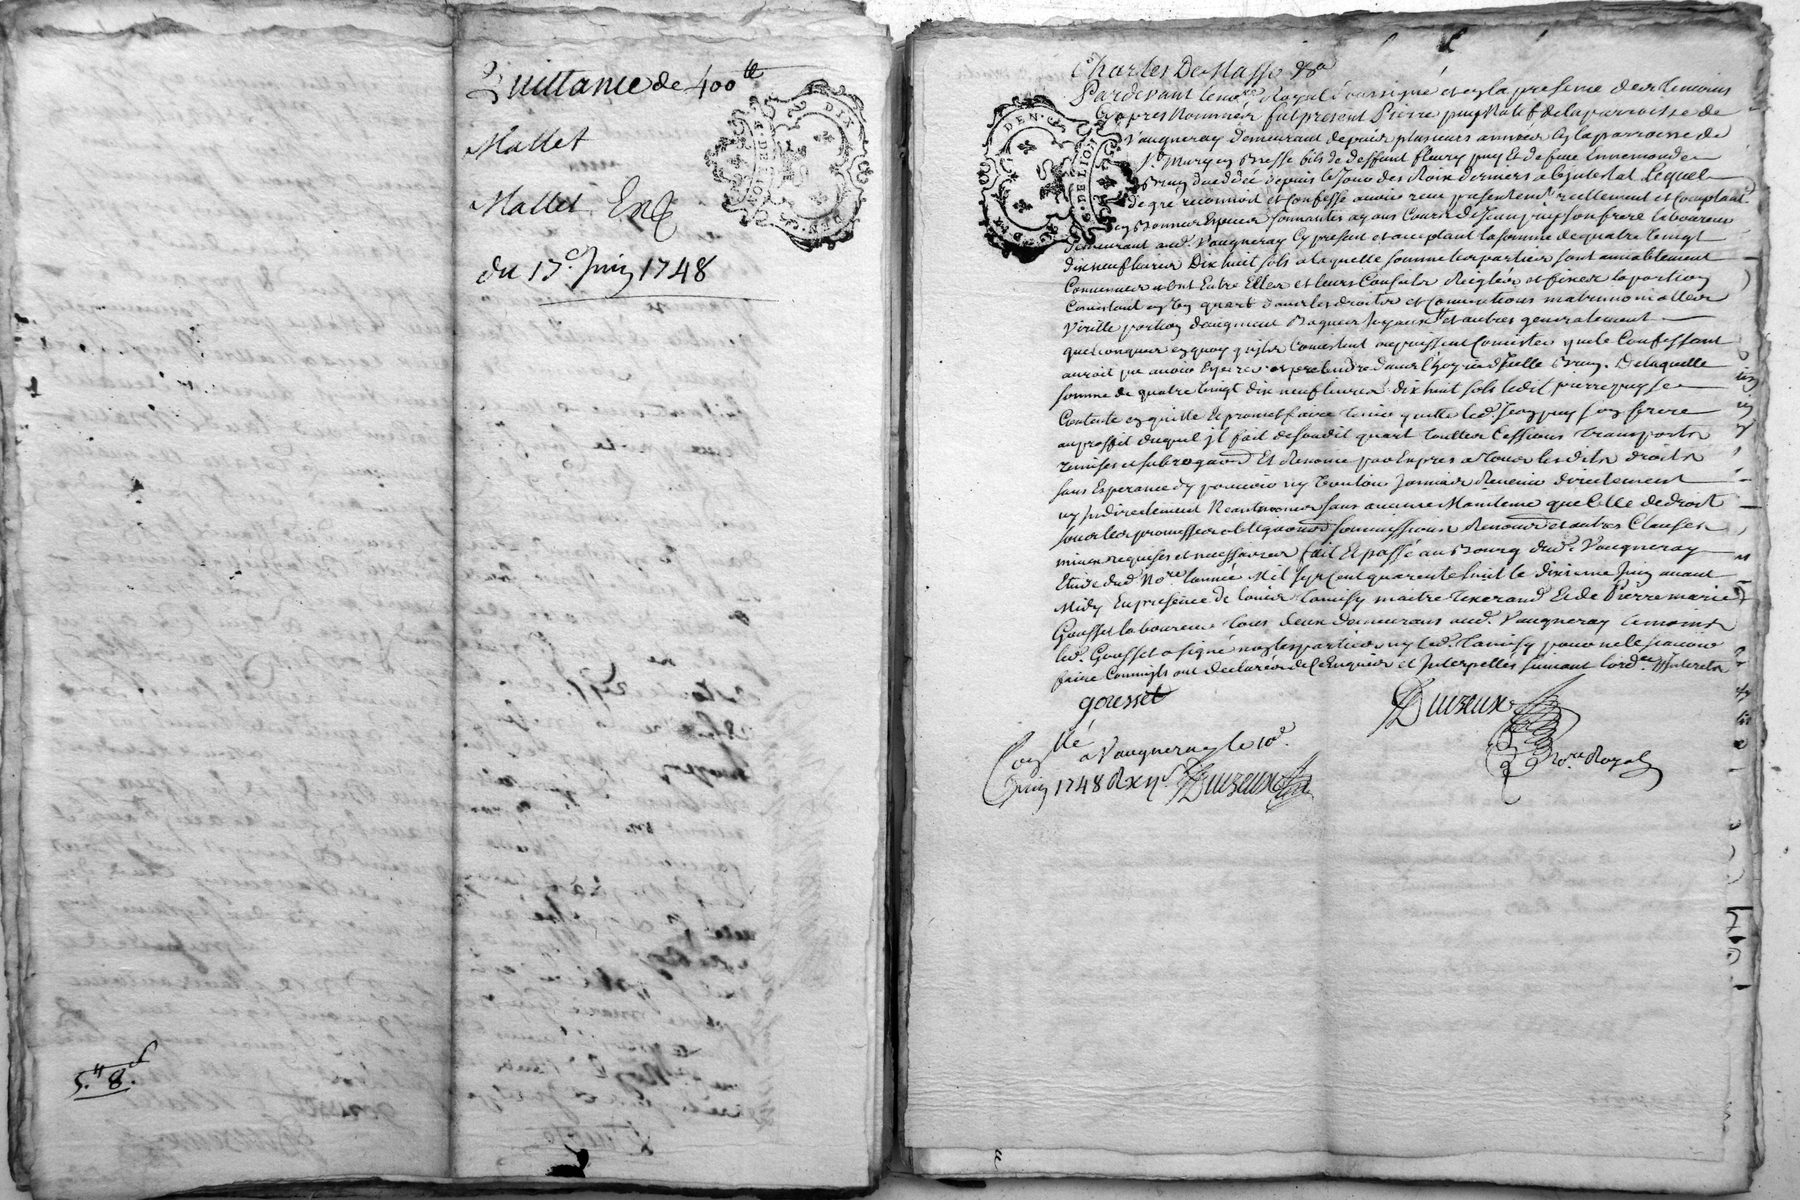 Quittance de 400ᵗᵗ
Mallet
Mallet
du 17e. Juin 1748
5.ᵗᵗ 8.ſ
DIX
DEN.
DE LION
Charles De Masso
Pardevant le nore. Royal soussigné et en la presence des temoins
Cy apres Nommés fut present Pierre puy Natif de la parroisse de
Vaugneray demeurant depuis plusieurs années en la parroisse de
St. en Bresse fils de deffunt fleury puy Et de feue Ennemonde
Brun decedée depuis le Jour des Rois derniers abintestat Lequel
de gré reconnoit et confesse avoir reçu presentemt. reellement et comptant
en bonnes Especes sonnantes ayans Cours de Jean puy son frere laboureur
demeurant aud. Vaugneray Cy present et acceptant la somme de quatre Vingt
dix neuf livres Dix huit sols a laquelle somme les parties sont amiablement
Convenues et ont Entre Elles et leurs Conseils Reiglés et fixer la portion
Consistant en un quart dans les droits et Conventions matrimonialles
Virille portion d'augment Bagues Joyaux et autres generalement
quelconques en quoy qu'ils Consistent ou puissent Consister que le Confessant
auroit pu avoir Esperer et pretendre dans L'hoyrie d'Icelle Brun. De laquelle
somme de quatre Vingt dix neuf livres dix huit sols ledit pierre puy se
Contente en quitte et promet faire tenir quitte led. Jean puy son frere
au proffit duquel il fait desoudit quart touttes Cessions transports
remises et subrogaons Et Renonce par Expres a tous lesdits droits
sans Esperance d'y pouvoir ny Vouloir Jamais Revenir directement
ny Indirectement Neantmoins sans aucune Maintenue que Celle de droit
sous les promesses obligaons soumissions Renonons et autres Clauses
mieux requises et necessaires fait Et passé au Bourg dud. Vaugneray
Etude dud. Nore. L'année Mil sept Cent quarente huit le dixieme Juin avant
Midy En presence de Louis maitre tixerand Et de Pierre marie
Gousset laboureur tous deux demeurans aud. Vaugneray temoins
led. Gousset a signé non les parties ny led. pour ne le sçavoir
faire Comm'ils ont declarés de ce Enquis et Interpelles suivant l'orde.
gousset
Duizeux
Nore. Royal
Conllé a Vaugneray le 10e.
Juin 1748 Rx Duizeux